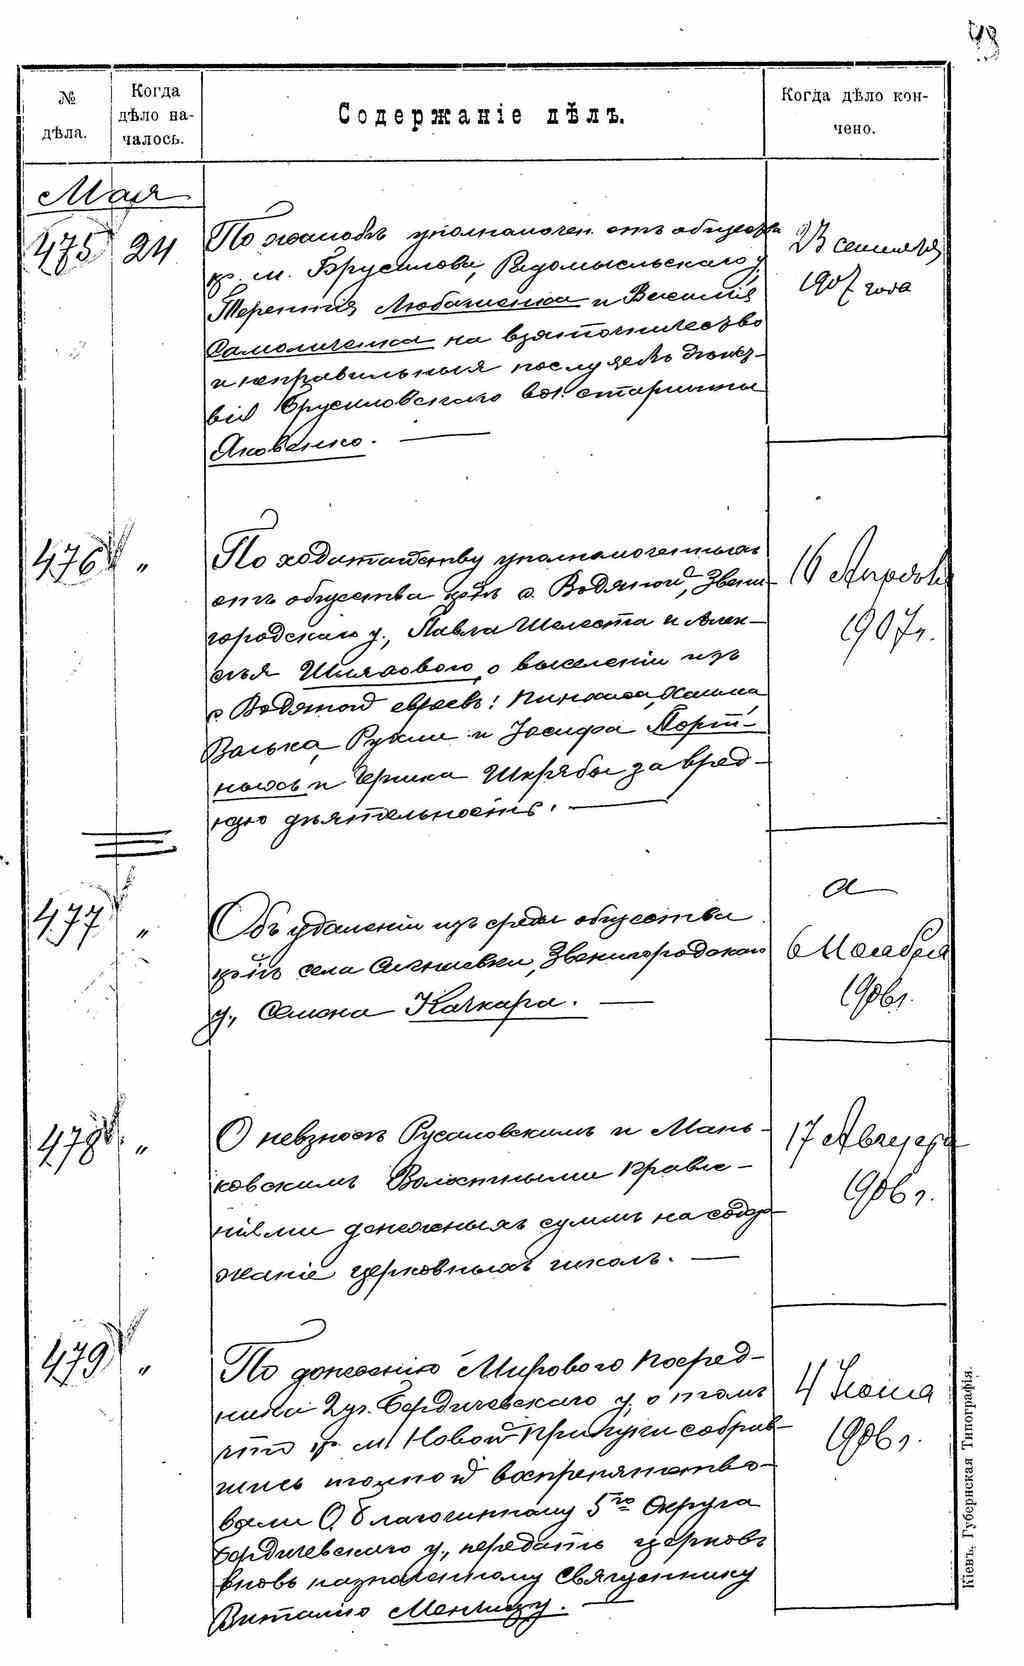 №
дѣла.
Когда
дѣло на-
чалось.
Содержаніе дѣлъ.
Когда дѣло кон-
чено.
Мая
475 24
По жалобѣ уполномочен. отъ общества
кр. м. Брусилова, Радомысльскаго у,
Терентія Любаченка и Василія
Самойленка на взяточничество
и неправильныя по службѣ дѣйст-
вія Брусиловскаго вол. старшины
Яковенко. —
23 сентября
1907 года
476 "
По ходатайству уполномоченныхъ
отъ общества кр. с. Водяной, Звени-
городскаго у., Павла Шелеста и Алек-
сѣя Шляхового, о выселеніи изъ
с. Водяной евреевъ: Пинхаса, Хаима
Волька, Рухли и Іосифа Порт-
ныхъ и Гершка Шкрябы за вред-
ную дѣятельность. —
16 Апрѣля
1907 г.
477 "
Объ удаленіи изъ среды общества
кр. села Звенигородскаго
у., Семена Качкара. —
6 Ноября
1906 г.
478 "
О невзносѣ Русаловскимъ и Мань-
ковскимъ Волостными Правле-
ніями денежныхъ суммъ на содер-
жаніе церковныхъ школъ. —
17 Августа
1906 г.
479 "
По донесенію Мирового Посред-
ника 2 уч. Бердичевскаго у, о томъ
что кр. м. Новой Прилуки собрав-
шись толпой воспрепятство-
вали О. благочинному 5го Округа
Бердичевскаго у., передать церковь
вновь назначенному Священнику
Виталію
4 Іюля
1906 г.
Кіевъ, Губернская Типографія.